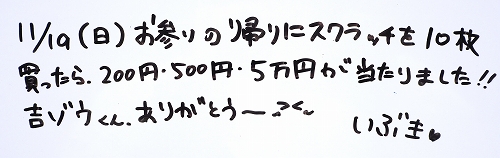 11/19(日)お参りの帰りにスクラッチを10枚
買ったら、200円・500円・5万円が当たりました!!
吉ゾウくん、ありがとう〜
いぶき